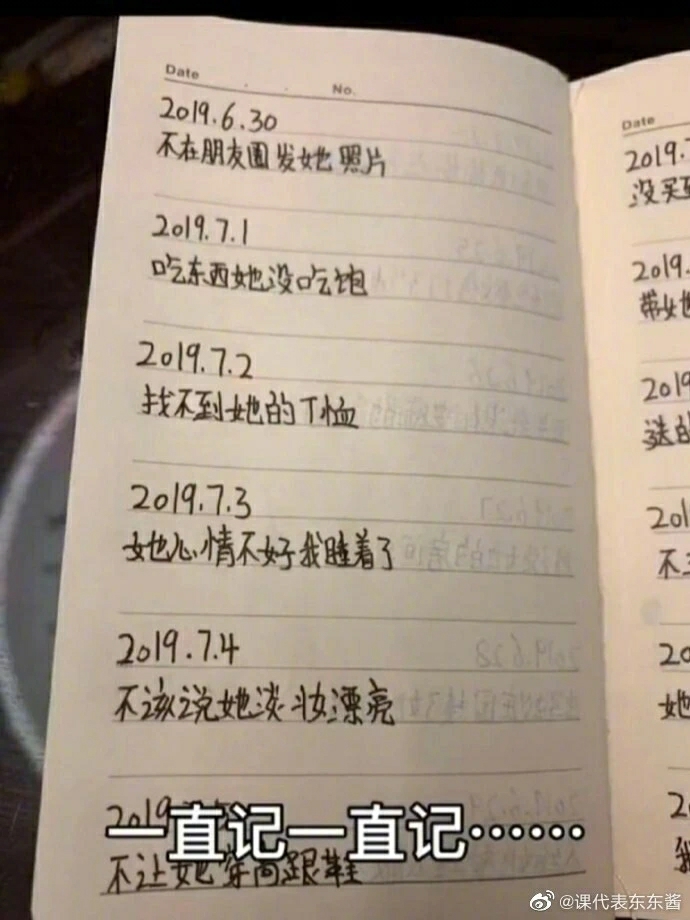 Date
No.
2019.6.30
不在朋友圈发她照片
2019.7.1
吃东西她没吃饱
2019.7.2
找不到她的T恤
2019.7.3
她心情不好我睡着了
2019.7.4
不该说她淡妆漂亮
2019
一直记一直记……
不让她穿高跟鞋
Date
2019.7
没买
2019.
带她
2019
送的
201
不
20
她
2
我
@课代表东东酱